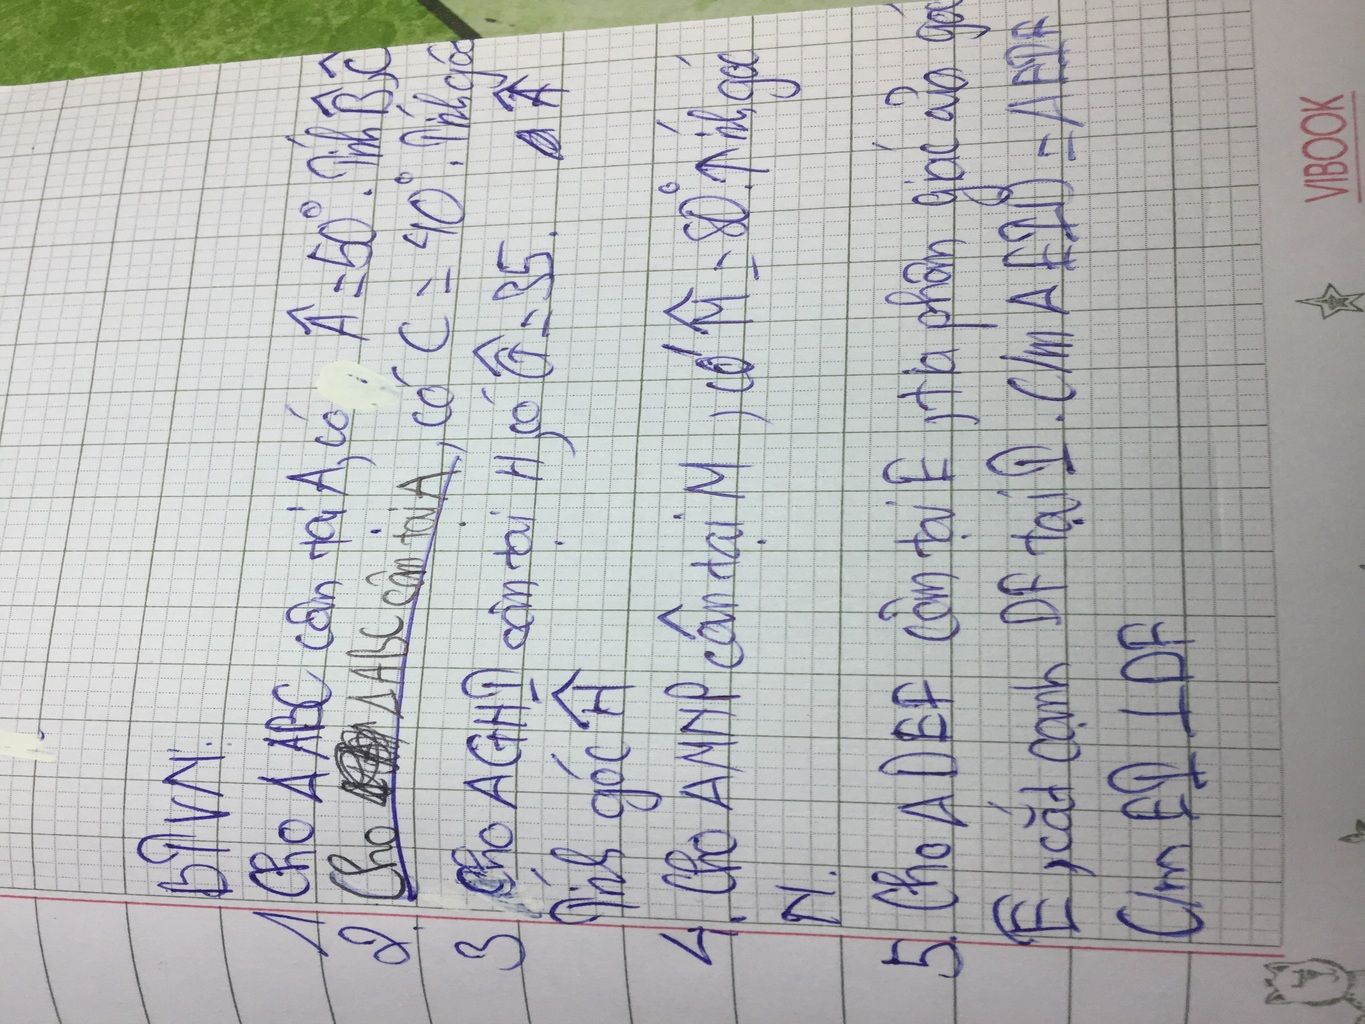 BTVN.
1 Cho Δ ABC cân tại A, có Â = 50°. Tính B̂, Ĉ
2. Cho Δ ABC cân tại A, có C = 40°. Tính góc Â
3 Cho Δ GHI cân tại H, có Î = 35.
Tính góc Ĥ
4. Cho Δ MNP cân tại M, có M̂ = 80°. Tính góc
N.
5. Cho Δ DEF cân tại E, tia phân giác của gó
E, cắt cạnh DF tại I. C/m Δ EID = Δ EIF
C/m EI ⊥ DF
VIBOOK